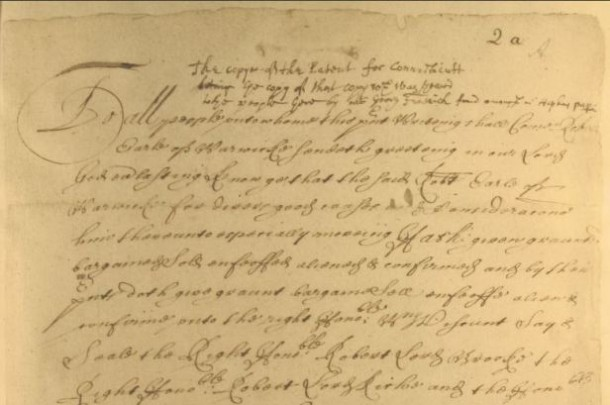 2 a
The copye of the Patent for Connecticutt
being the copy of that copy wch was shewed
to the people here by Mr George Fenwick found amongst Mr Hopkins papers
To all people unto whome this pnt Writeing shall Come Robt
Earle of Warwicke sendeth greeteing in our Lord
God everlasting Know ye that the said Robt Earle of
Warwicke for divers good causes & Consideracons
him thereunto especially moveing Hath given graunted
bargained sold enfeoffed aliened & confirmed and by these
pnts doth give graunt bargaine sell enfeoffe aliene &
confirme unto the right Honoble: Wm Viscount Say &
Seale the Right Honoble Robert Lord Brooke the
Right Honoble Robert Lord Riche and the Honoble